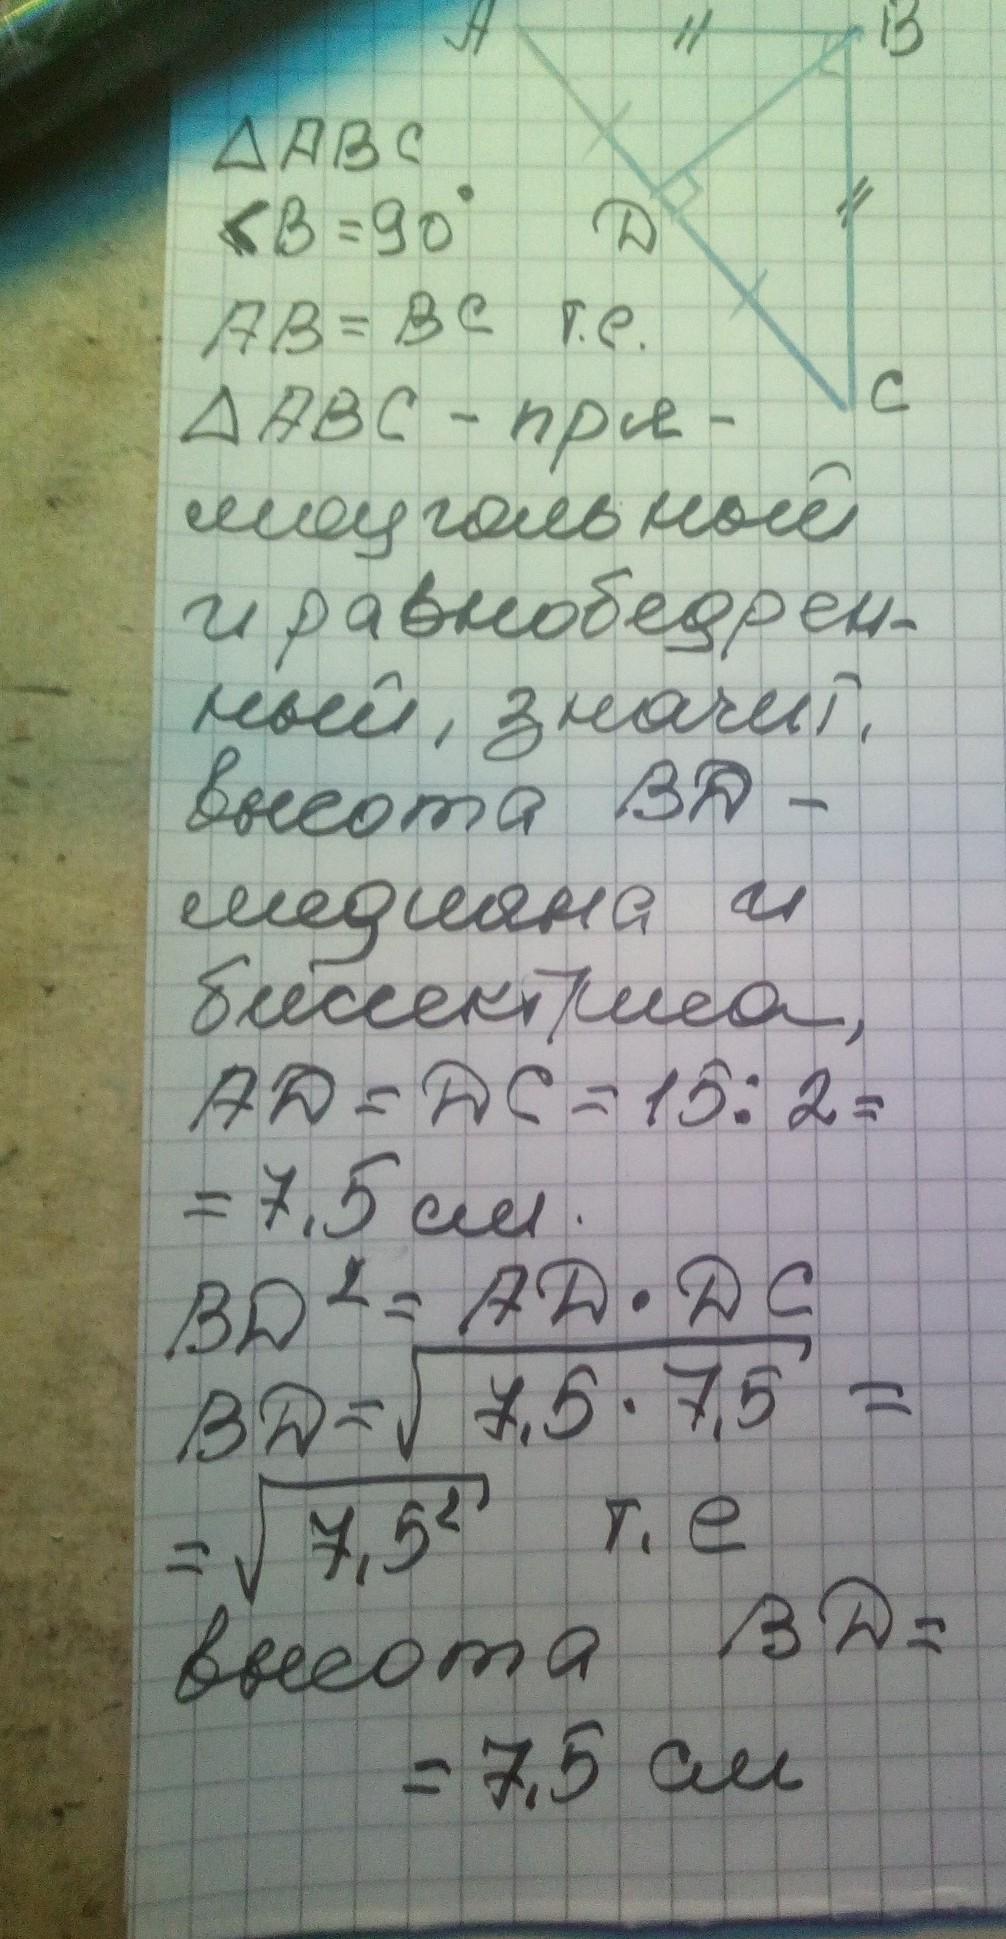 A B
△ABC
∢B=90°
D
AB=BC т.е.
C
△ABC - пря-
моугольный
и равнобедрен-
ный, значит,
высота BD -
медиана и
биссектриса,
AD=DC=15:2=
=7,5 см.
BD²=AD·DC
BD=√7,5·7,5 =
=√7,5² т.е
высота BD=
=7,5 см